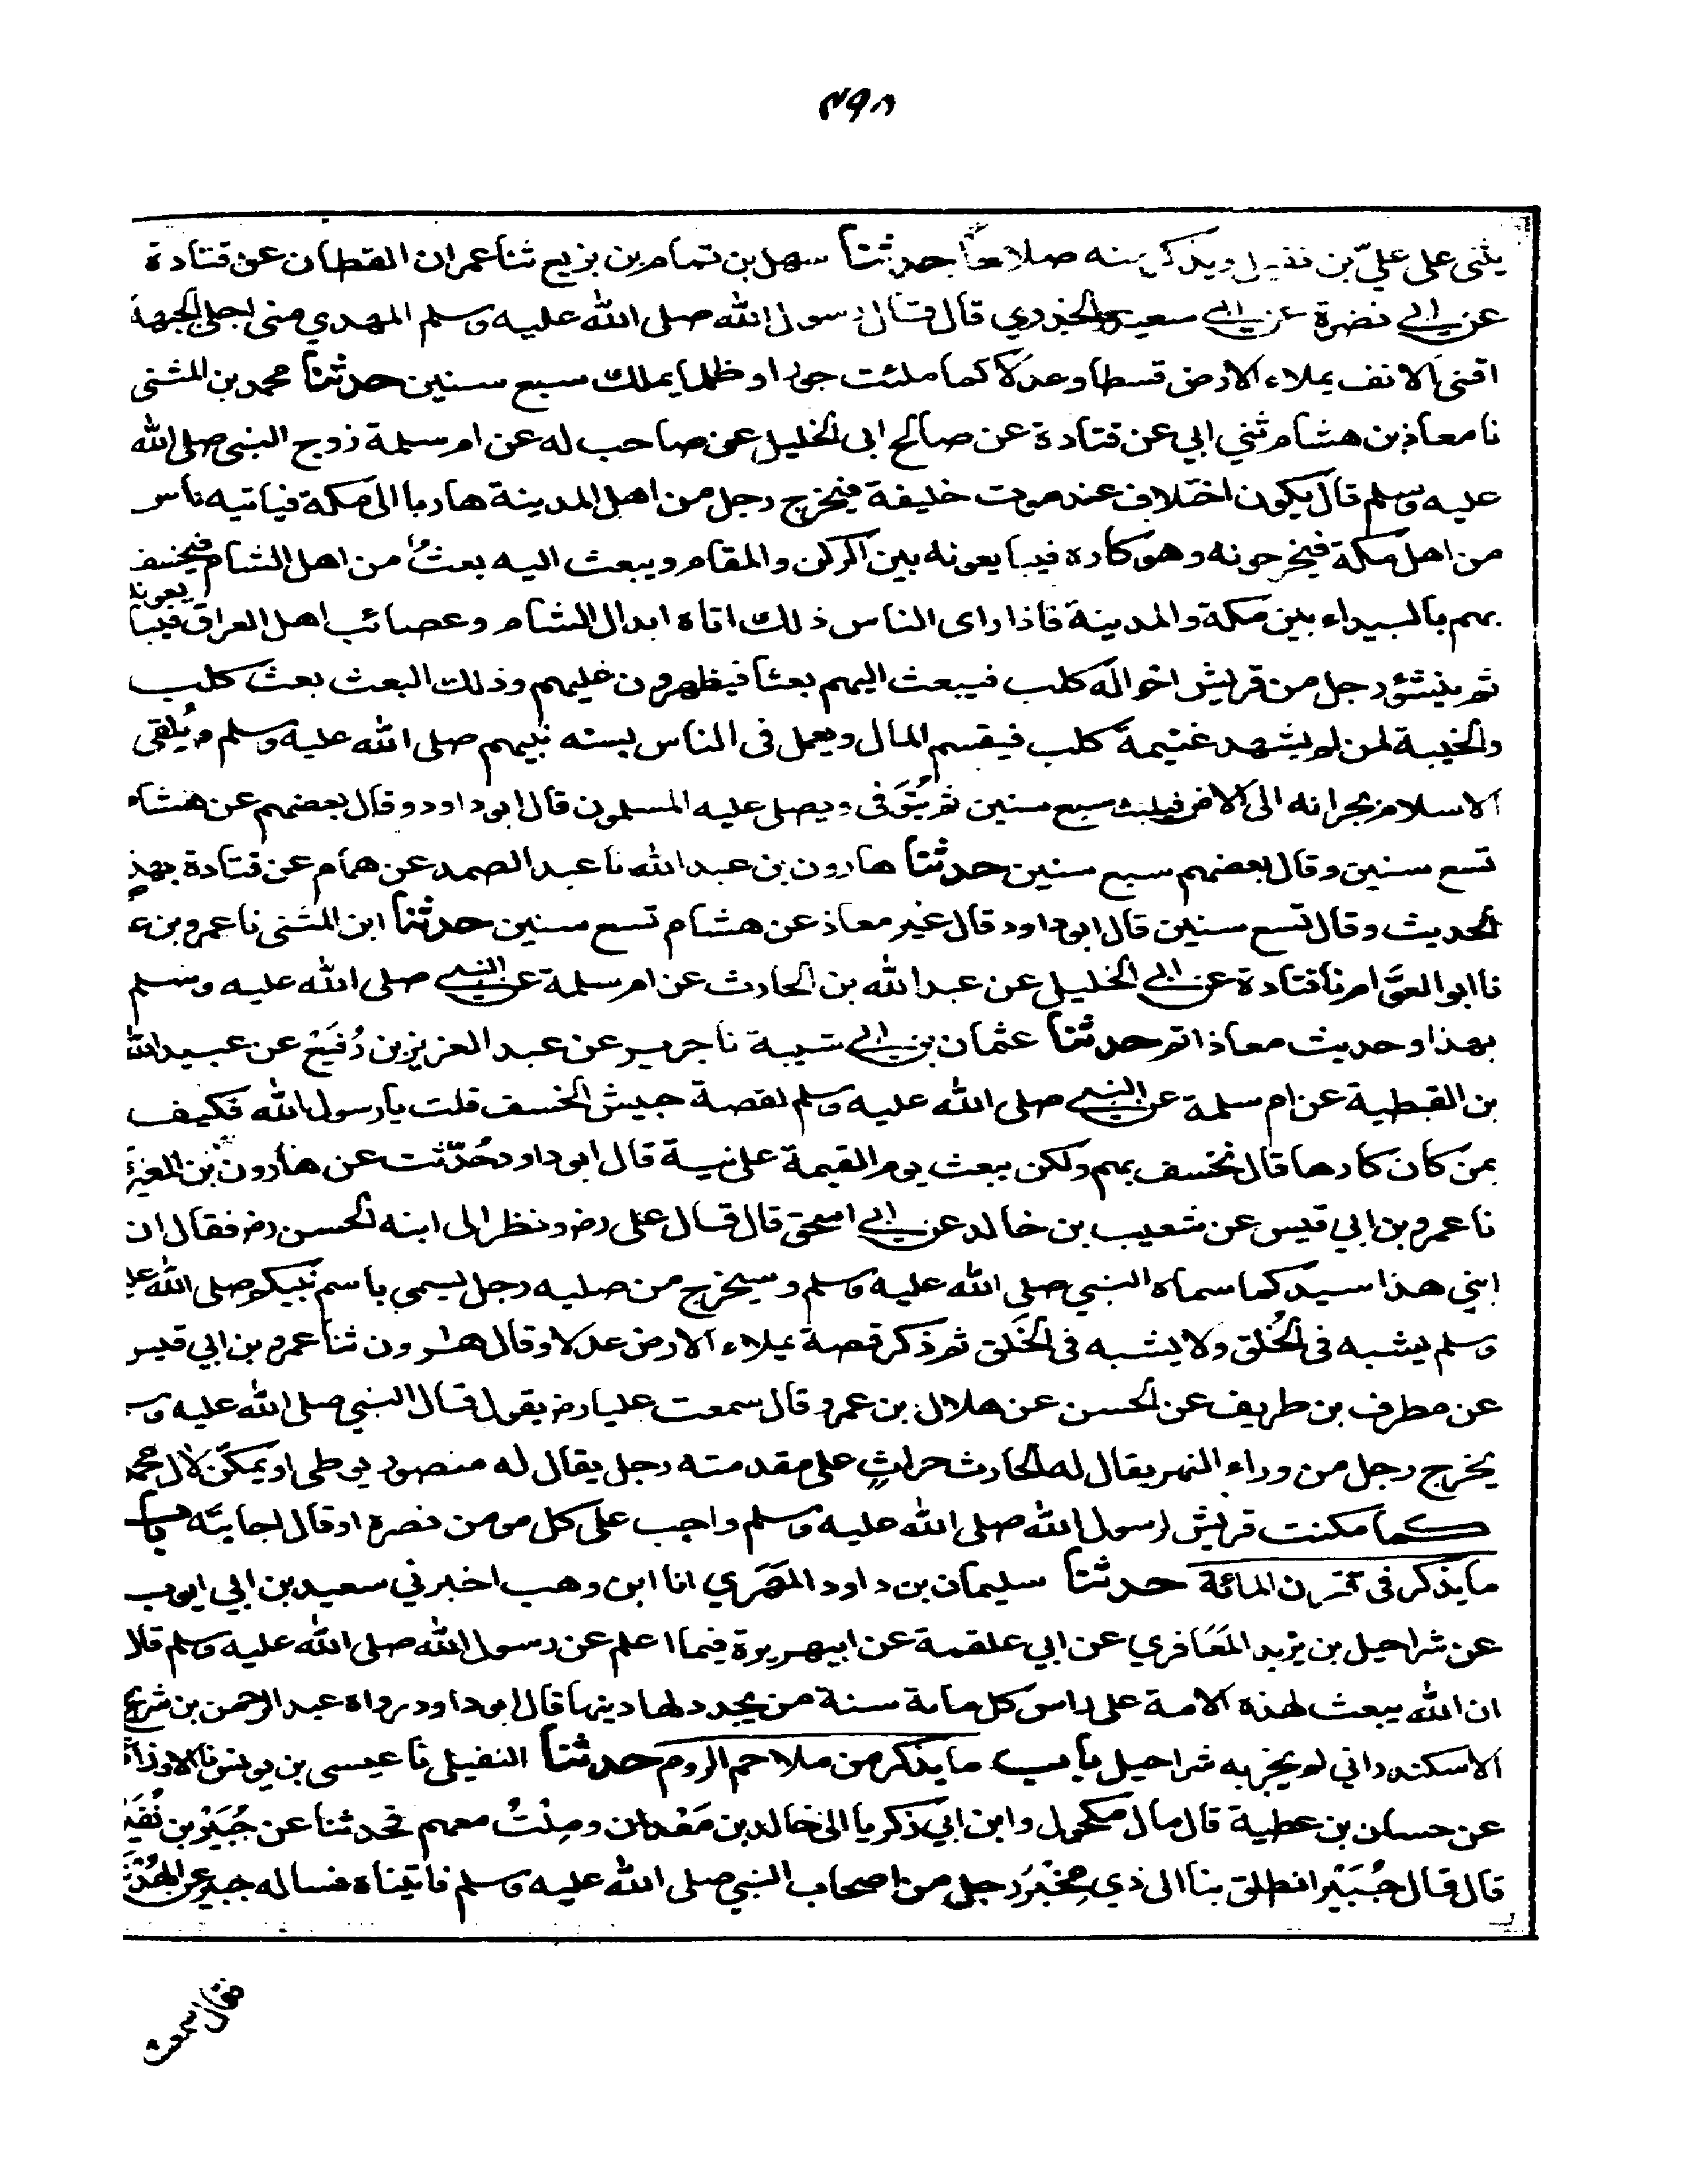 ٤٩٨
يثنى على عليّ بن نفيل ويذكر منه صلاحا حدثنا سهل بن تمام بن بزيع ثنا عمران القطان عن قتادة
عن ابي نضرة عن ابي سعيد الخدري قال قال رسول الله صلى الله عليه وسلم المهدي منى اجلى الجبهة
اقنى الانف يملاء الارض قسطا وعدلا كما ملئت جورا وظلما يملك سبع سنين حدثنا محمد بن المثنى
نا معاذ بن هشام ثني ابي عن قتادة عن صالح ابى الخليل عن صاحب له عن ام سلمة زوج النبى صلى الله
عليه وسلم قال يكون اختلاف عند موت خليفة فيخرج رجل من اهل المدينة هاربا الى مكة فياتيه ناس
من اهل مكة فيخرجونه وهو كاره فيبايعونه بين الركن والمقام ويبعث اليه بعثٌ من اهل الشام فيخسف
بهم بالبيداء بين مكة والمدينة فاذا راى الناس ذلك اتاه ابدال الشام وعصائب اهل العراق فيبايعونه
ثم ينشؤ رجل من قريش اخواله كلب فيبعث اليهم بعثا فيظهرون عليهم وذلك البعث بعث كلب
والخيبة لمن لم يشهد غنيمة كلب فيقسم المال ويعمل فى الناس بسنه نبيهم صلى الله عليه وسلم ويُلقى
الاسلام بجرانه الى الارض فيلبث سبع سنين ثم يُتَوَفى ويصلى عليه المسلمون قال ابو داود وقال بعضهم عن هشام
تسع سنين وقال بعضهم سبع سنين حدثنا هارون بن عبد الله نا عبد الصمد عن همام عن قتادة بهذ
الحديث وقال تسع سنين قال ابو داود قال غير معاذ عن هشام تسع سنين حدثنا ابن المثنى نا عمرو بن ع
نا ابو العوَّام نا قتادة عن ابي الخليل عن عبد الله بن الحارث عن ام سلمة عن النبي صلى الله عليه وسلم
بهذا وحديث معاذ اتم حدثنا عثمان بن ابي شيبة نا جرير عن عبد العزيز بن رُفَيْع عن عبيد الله
بن القبطية عن ام سلمة عن النبي صلى الله عليه وسلم لقصة جيش الخسف قلت يا رسول الله فكيف
بمن كان كارها قال نخسف بهم ولكن يبعث يوم القيمة على نية قال ابو داود حُدّثت عن هارون بن المغيرة
نا عمرو بن ابي قيس عن شعيب بن خالد عن ابي اسحق قال قال على رض ونظر الى ابنه الحسن رض فقال ان
ابني هذا سيد كما سماه النبي صلى الله عليه وسلم وسيخرج من صلبه رجل يسمى باسم نبيكم صلى الله عل
وسلم يشبه فى الخُلق ولا يشبه فى الخَلق ثم ذكر قصة يملاء الارض عدلا وقال هارون ثنا عمرو بن ابي قيس
عن مطرف بن طريف عن الحسن عن هلال بن عمرو قال سمعت عليا رض يقول قال النبي صلى الله عليه وس
يخرج رجل من وراء النهر يقال له الحارث حراثٍ على مقدمته رجل يقال له منصور يوطى او يمكّن لال محمد
كما مكنت قريش لرسول الله صلى الله عليه وسلم واجب على كل مومن نصره او قال اجابته باب
ما يذكر فى قرن المائة حدثنا سليمان بن داود المَهَري انا ابن وهب اخبرني سعيد بن ابي ايوب
عن شراحيل بن يزيد المَعَافري عن ابي علقمة عن ابيهريرة فيما اعلم عن رسول الله صلى الله عليه وسلم قلا
ان الله يبعث لهذه الامة على راس كل ماىة سنة من يجدد لها دينها قال ابو داود رواه عبد الرحمن بن شريح
الاسكندراني لم يجز به شراحيل باب ما يذكر من ملاحم الروم حدثنا النفيلى نا عيسى بن يونس نا الاوزا
عن حسان بن عطية قال مال مكحول وابن ابي زكريا الى خالد بن مَعْدان ومِلْتُ معهم فحدثنا عن جُبَيْر بن نُفَيْر
قال قال جُبَيْر انطلق بنا الى ذي مِخْبَر رجل من اصحاب النبي صلى الله عليه وسلم فاتيناه فساله جبير عن الهُدْنَة
فقال سمعت